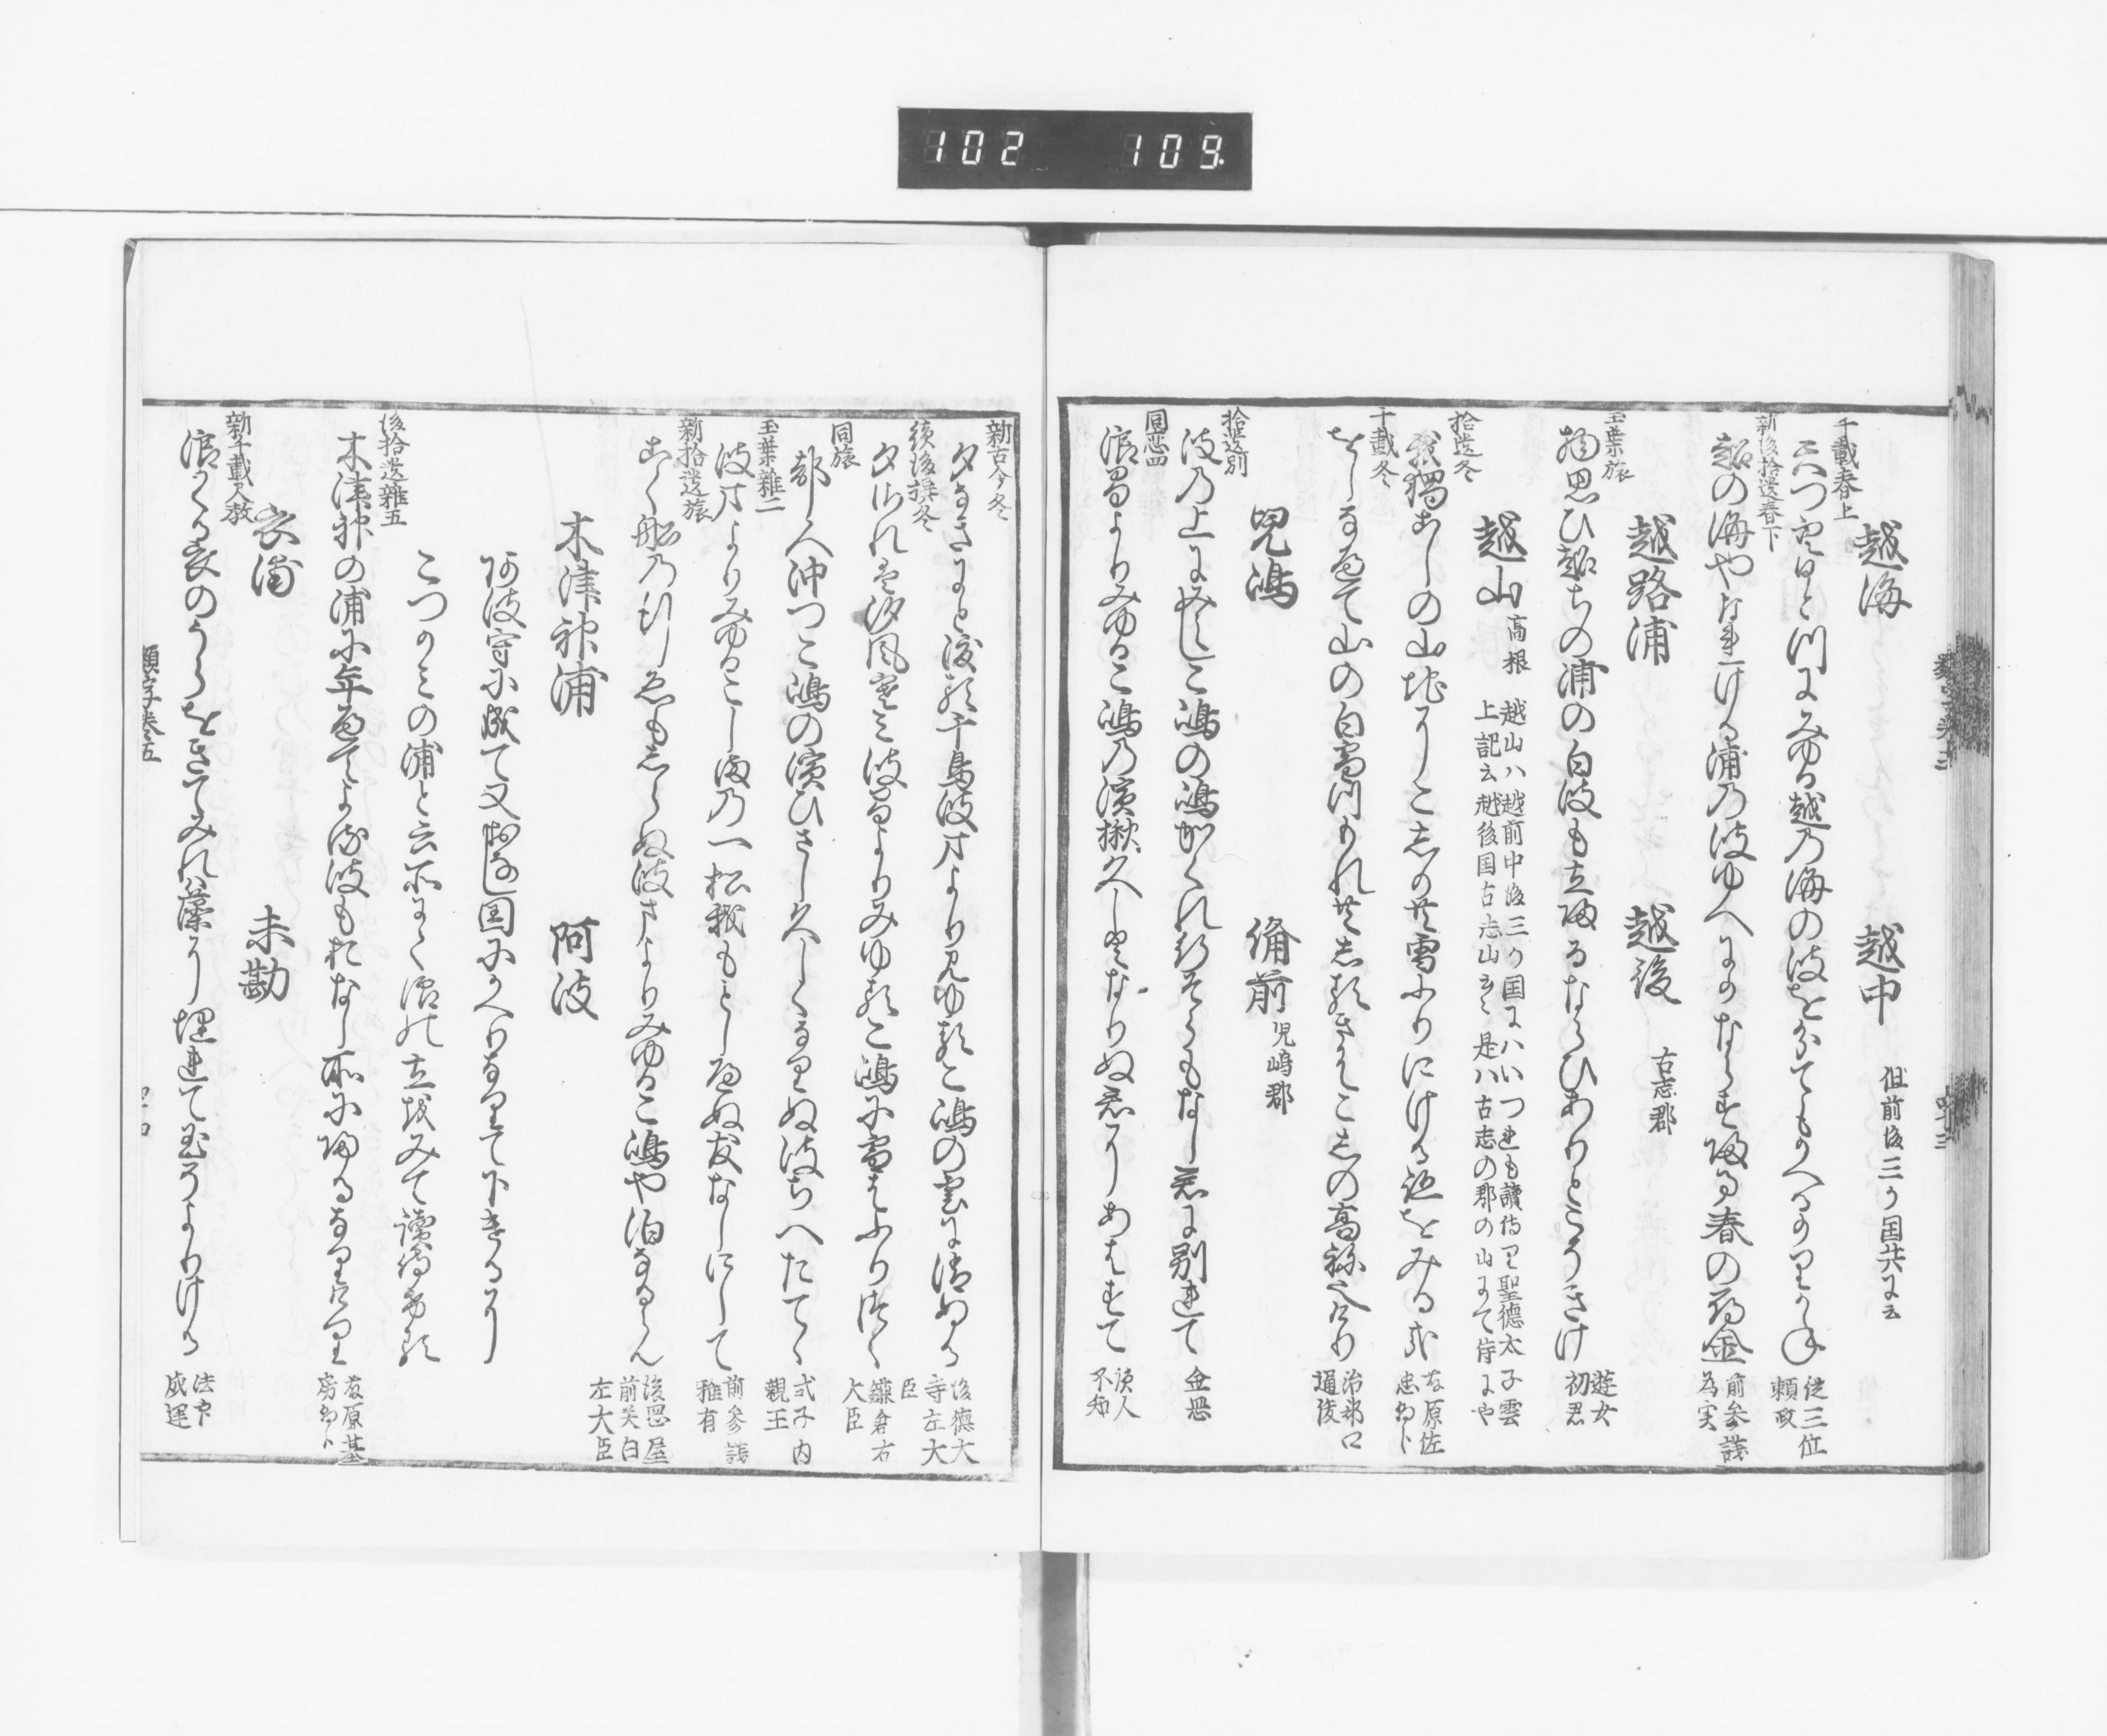 102 109
越海 越中 但前後三ケ国共に云
千載春上
天つ空ひとつにみゆる越の海の波を分てもかへるかりかね 従三位頼政
新後拾遺春下
越の海やなれける浦の波ゆへにのならす帰る春の雁金 前参議為実
越路浦 越後 古志郡
玉葉旅
物思ひ越ちの浦の白波も立帰るならひありとこそきけ 遊女初君
越山 高根 越山ハ越前中後三ケ国にハいつれも讀侍り聖徳太子雲
上記云越後国古志山云々是ハ古志の郡の山にて侍にや
拾遺冬
我独こしの山ちにこしかとも雪ふりにける跡をみる哉 藤原佐忠朝臣
千載冬
をしなへて山の白雪つもれともしるきはこしの高ねなりけり 治部卿通俊
児嶋 備前 児嶋郡
拾遺別
波の上にみえしこ嶋の嶋かくれ行そらもなし君に別れて 金岡
同恋四
浪まよりみゆるこ嶋の濱楸久しくなりぬ君にあはすて 讀人不知
新古今冬
夕なきにと渡る千鳥波まより見ゆるこ嶋の雲に消ぬる 後徳大寺左大臣
続後撰冬
夕されは汐風寒み波まよりみゆるこ嶋に雪はふりつゝ 鎌倉右大臣
同旅
都人沖つこ嶋の濱ひさし久しくなりぬ波ちへたてゝ 式子内親王
玉葉雑二
波まよりみゆるこしまの一松我もとしへぬ友なしにして 前参議雅有
新拾遺旅
こく船の行ゑもしらぬ波まよりみゆるこ嶋や泊なるらん 後岡屋前関白左大臣
木津神浦 阿波
阿波守に成て又おなし国にかへりなりて下けるに
こつかみの浦と云所にて浪の立をみて讀侍ける
後拾遺雑五
木津神の浦に年へてよる波もおなし所に帰るなりけり 藤原基房朝臣
衣浦 未勘
新千載尺教
浪かくる衣のうらをきてみれは藻に埋れて玉そよりける 法印成運
類字巻五